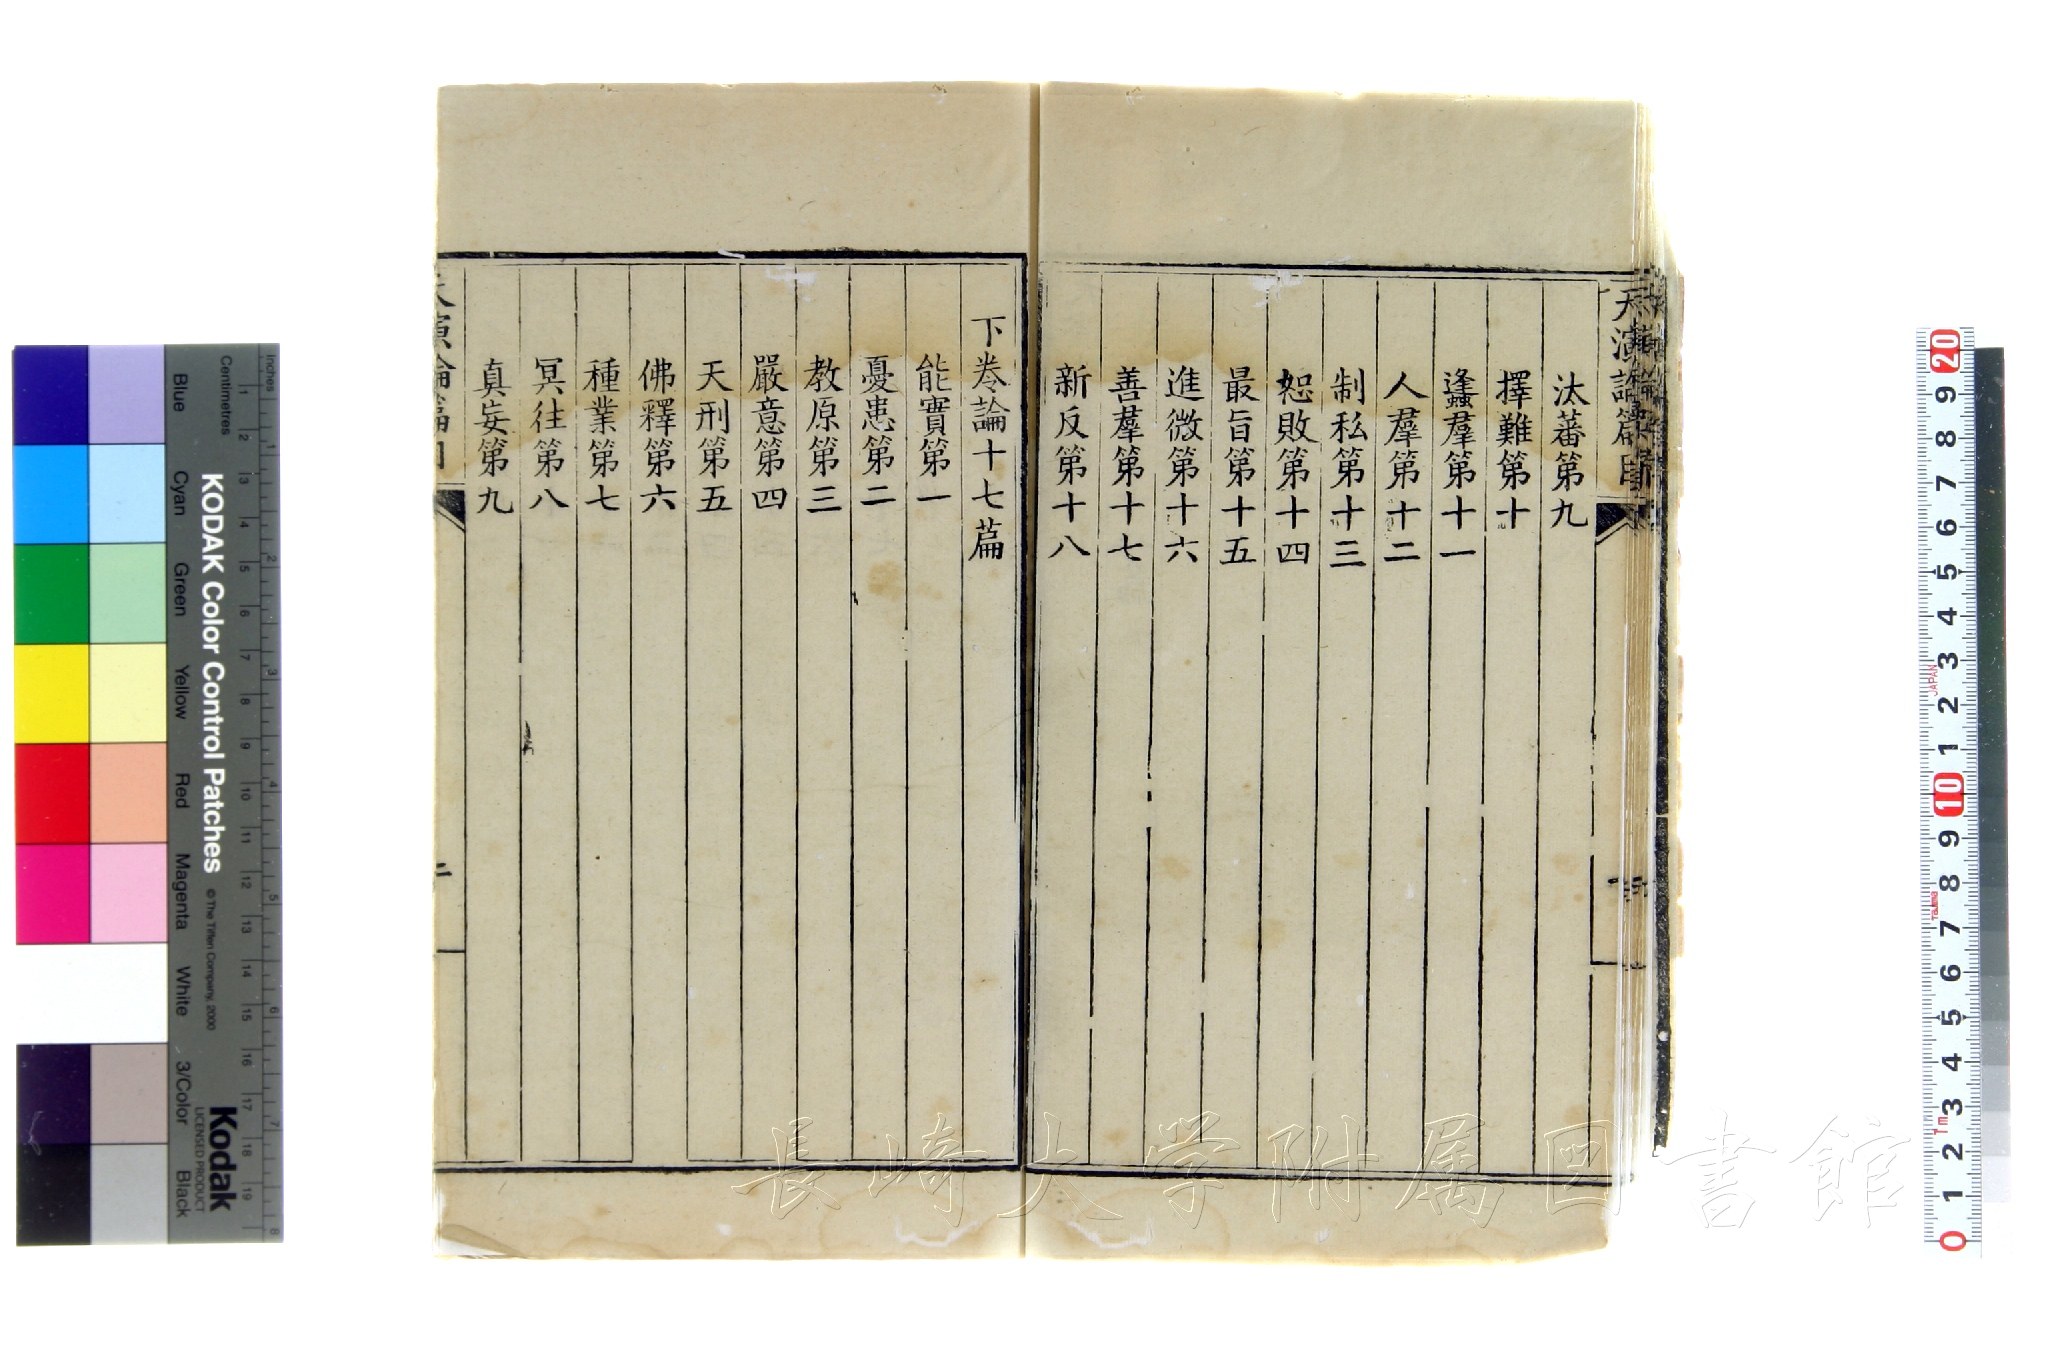 天演論篇目
汰蕃第九
擇難第十
蠭羣第十一
人羣第十二
制私第十三
恕敗第十四
最旨第十五
進微第十六
善羣第十七
新反第十八
下卷論十七萹
能實第一
憂患第二
教原第三
嚴意第四
天刑第五
佛釋第六
種業第七
冥往第八
真妄第九
長崎大学附属図書館
Inches
Centimetres
KODAK Color Control Patches
© The Tiffen Company, 2000
Kodak
LICENSED PRODUCT
Blue
Cyan
Green
Yellow
Red
Magenta
White
3/Color
Black
1 2 3 4 5 6 7 8 9 10 11 12 13 14 15 16 17 18 19
1 2 3 4 5 6 7 8
20 9 8 7 6 5 4 3 2 1 10 9 8 7 6 5 4 3 2 1 0
JAPAN